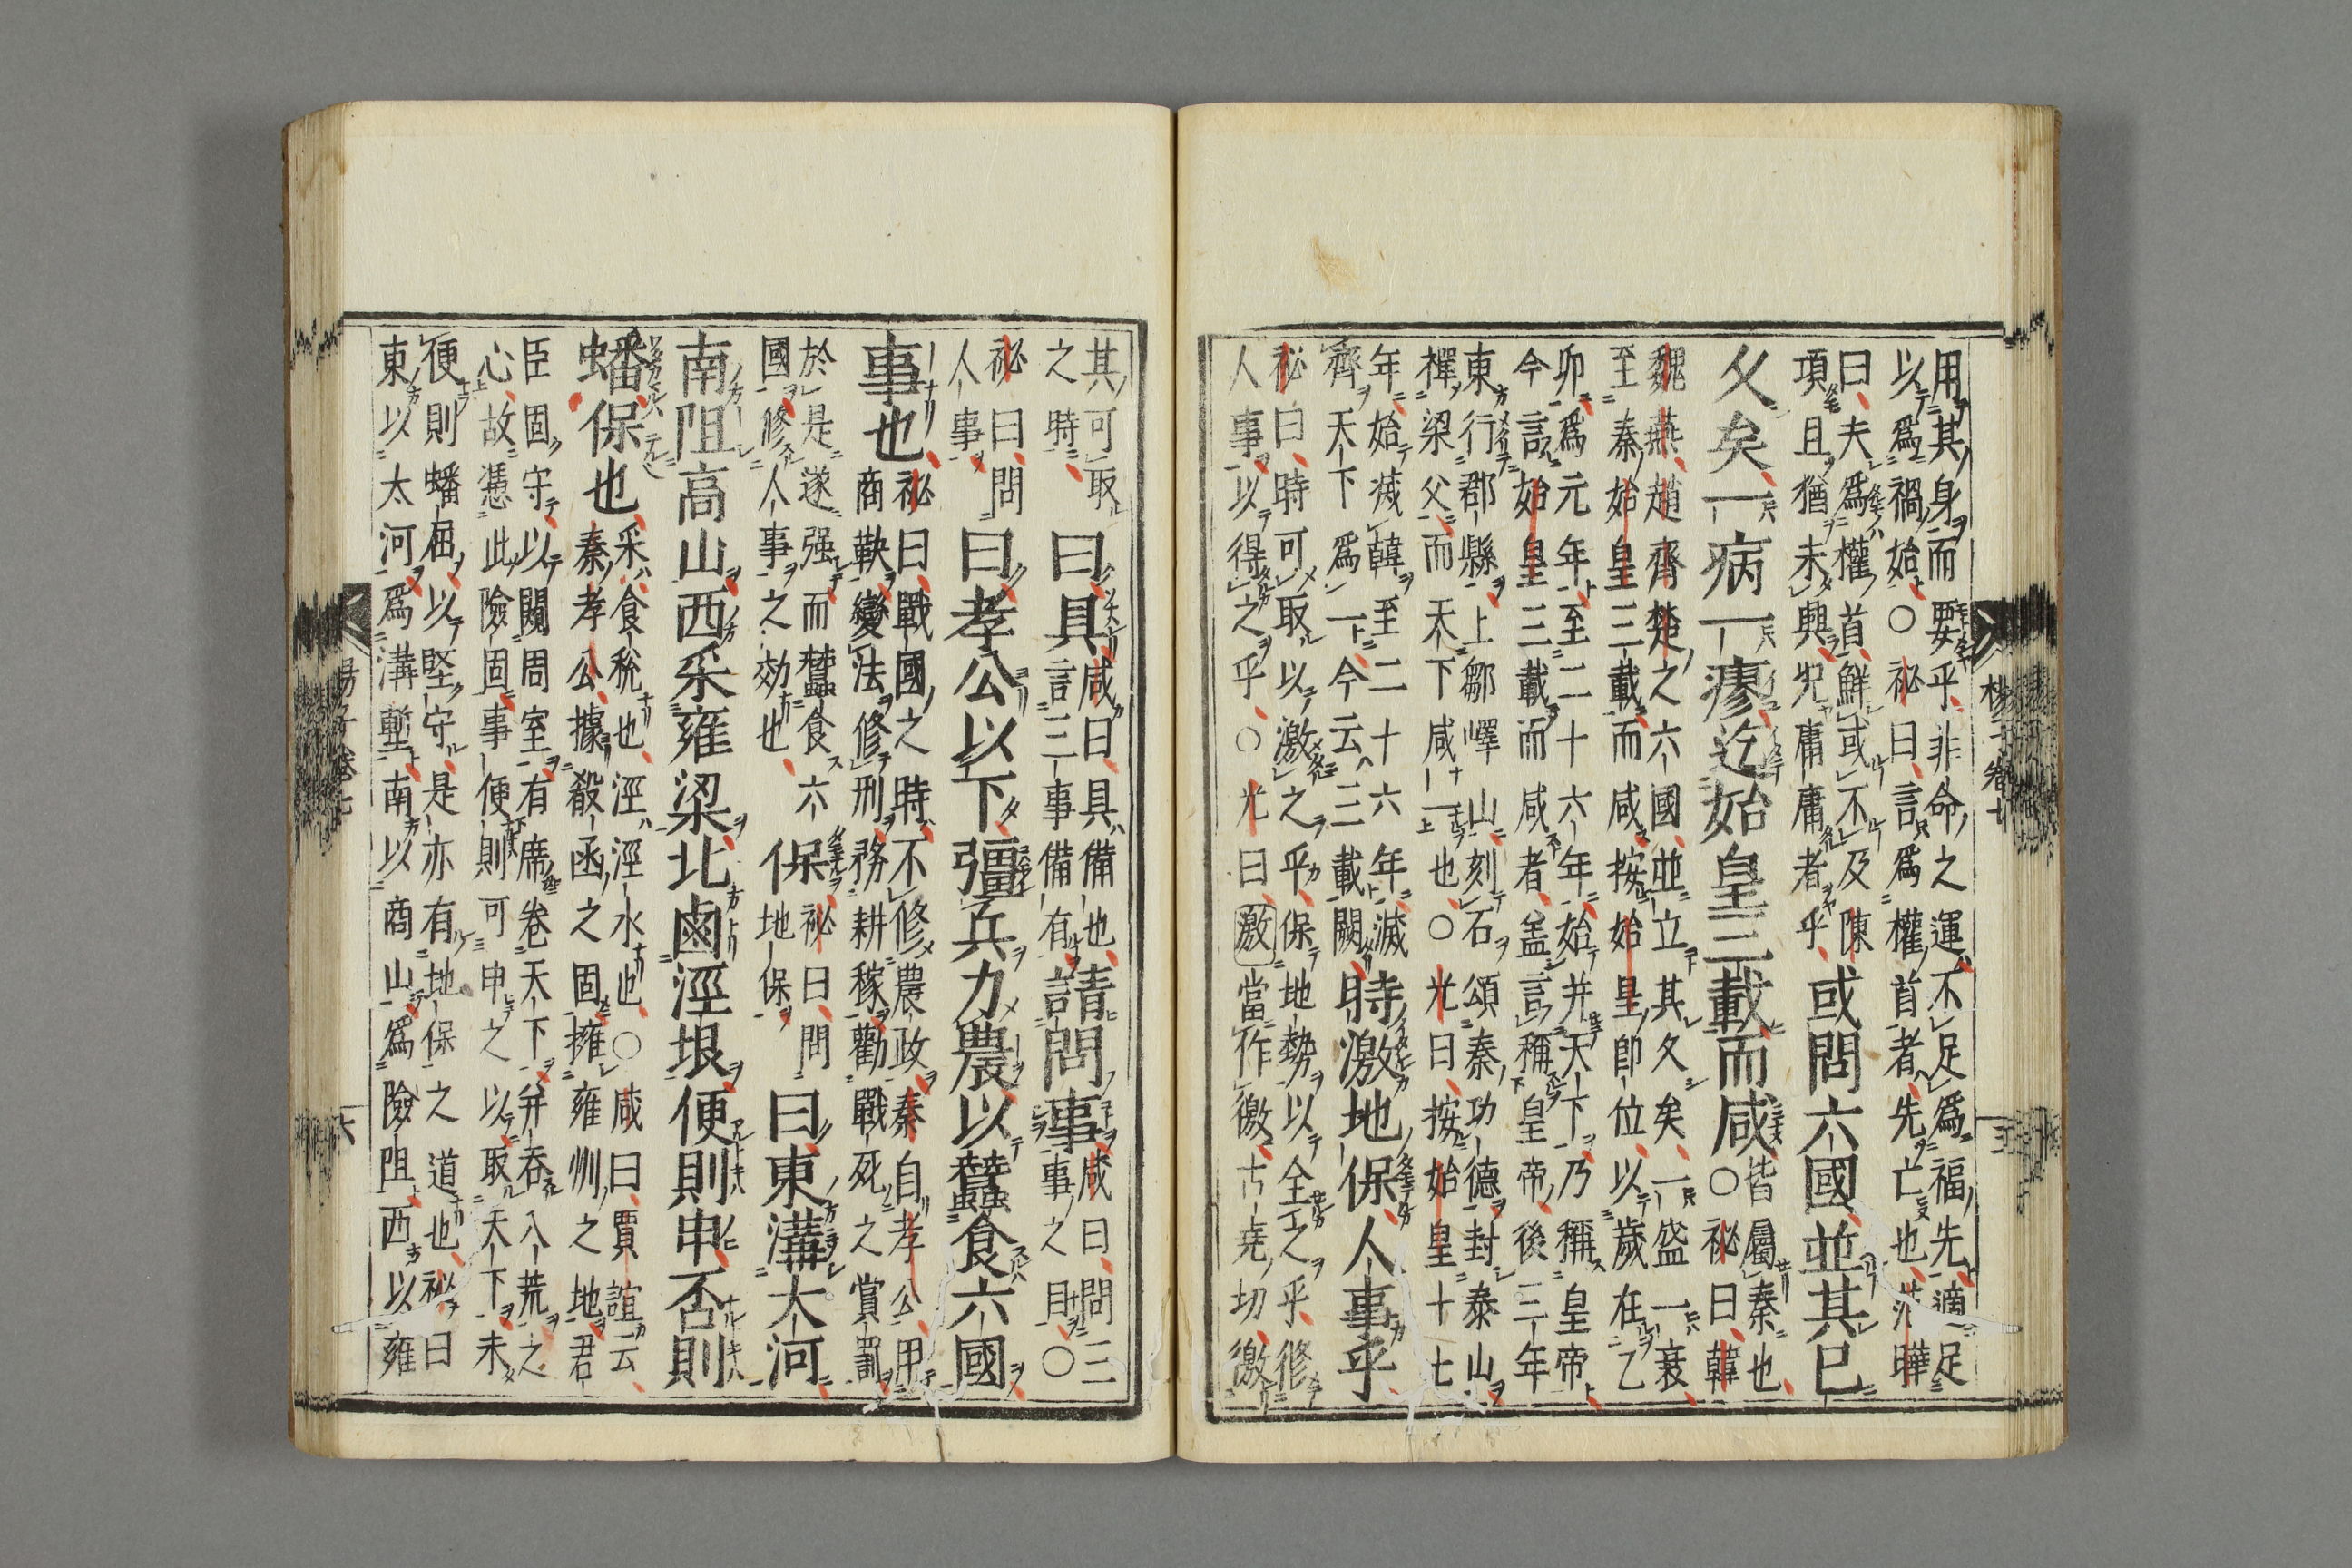 用其身而要乎非命之運不足爲福先適足
以爲禍始○祕曰言爲權首者先亡也范曄
曰夫爲權首鮮或不及陳
項且猶未興況庸庸者乎或問六國並其已
久矣一病一瘳迄始皇三載而咸皆屬秦也
○祕曰韓
魏燕趙齊楚之六國並立其久矣一盛一衰
至秦始皇三載而咸按始皇即位以歲在乙
卯爲元年至二十六年始并天下乃稱皇帝
今言始皇三載而咸者盖言稱皇帝後三年
東行郡縣上鄒嶧山刻石頌秦功德封泰山
禪梁父而天下咸一也○光曰按始皇十七
年始滅韓至二十六年滅
齊天下爲一今云三載闕時激地保人事乎
祕曰時可取以激之乎保地勢以全之乎修
人事以得之乎○光曰激當作徼古堯切徼
楊子卷七
其可取
之時曰具咸曰具備也
言三事備有請問事咸曰問三
事之目○
祕曰問
人事曰孝公以下彊兵力農以蠶食六國
事也祕曰戰國之時不修農政秦自孝公用
商鞅變法修刑務耕稼勸戰死之賞罰
於是遂强而蠶食六
國修人事之効也保祕曰問
地保曰東溝大河
南阻高山西采雍梁北鹵涇垠便則申否則
蟠保也采食稅也涇涇水也○咸曰賈誼云
秦孝公據殽函之固擁雍州之地君
臣固守以闚周室有席卷天下并吞八荒之
心故憑此險固事便則可申之以取天下未
便則蟠屈以堅守是亦有地保之道也祕曰
東以太河爲溝塹南以商山爲險阻西以雍
楊子卷七
六